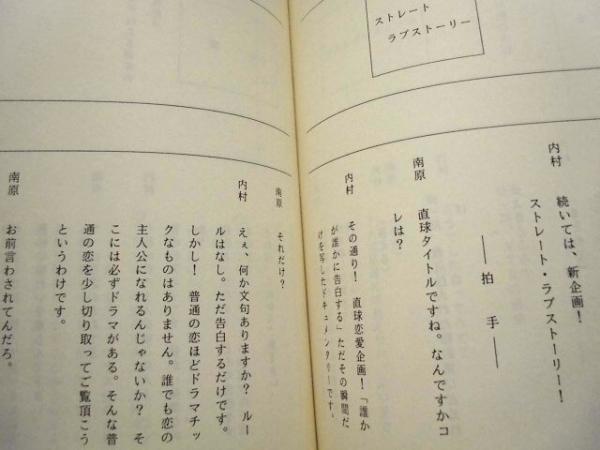 ストレート
ラブストーリー
内村　続いては、新企画！
ストレート・ラブストーリー！
――拍　手――
南原　直球タイトルですね。なんですかコ
レは？
内村　その通り！　直球恋愛企画！「誰か
が誰かに告白する」ただその瞬間だ
けを写したドキュメンタリーです。
南原　それだけ？
内村　えぇ、何か文句ありますか？　ルー
ルはなし。ただ告白するだけです。
しかし！　普通の恋ほどドラマチッ
クなものはありません。誰でも恋の
主人公になれるんじゃないか？　そ
こには必ずドラマがある。そんな普
通の恋を少し切り取ってご覧頂こう
というわけです。
南原　お前言わされてんだろ。